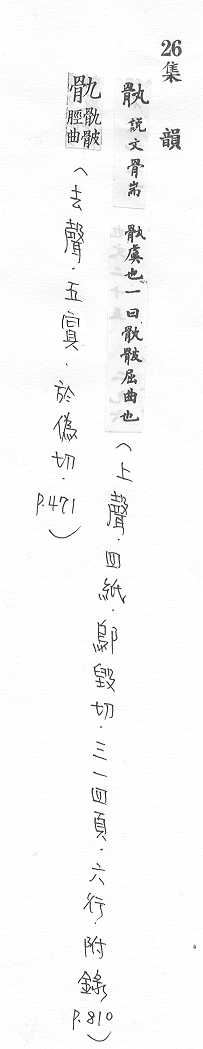 26 集韻
骫 說文骨耑 骫虞也一曰骫骳屈曲也(上聲.四紙.鄔毀切.三一四頁.六行.附錄P.810)
骩 骩骳脛曲(去聲.五寘.於偽切.P.471)